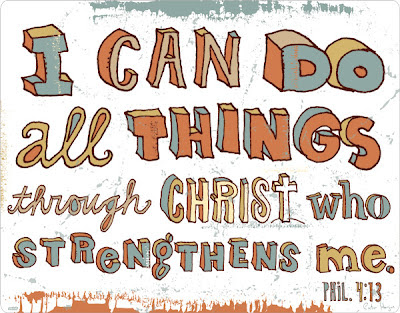 I CAN DO
all THINGS
through CHRIST who
STRENGTHENS me.
PHIL. 4:13